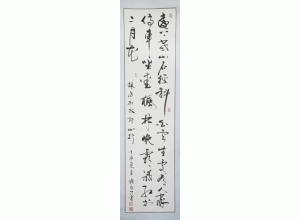 遠上寒山石徑斜白雲生處有人家
停車坐愛楓林晚霜葉紅於
二月花